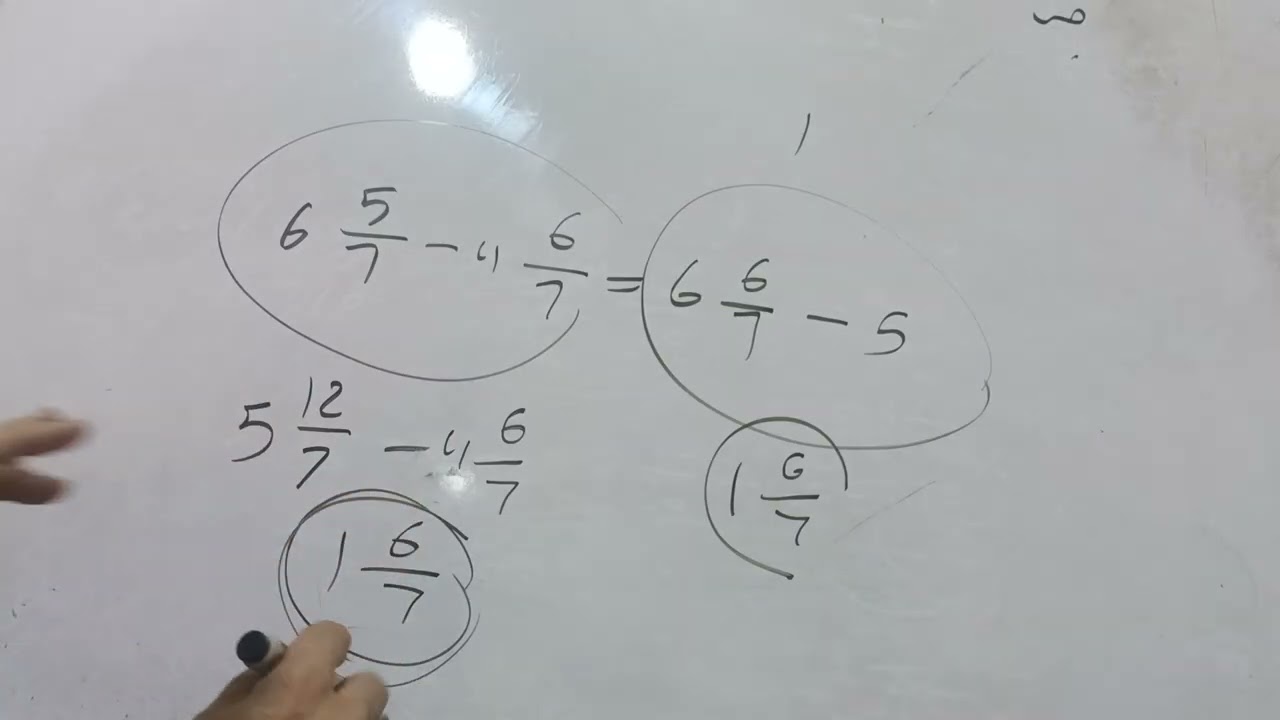 6 5/7 - 4 6/7 = 6 6/7 - 5
5 12/7 - 4 6/7
1 6/7
1 6/7